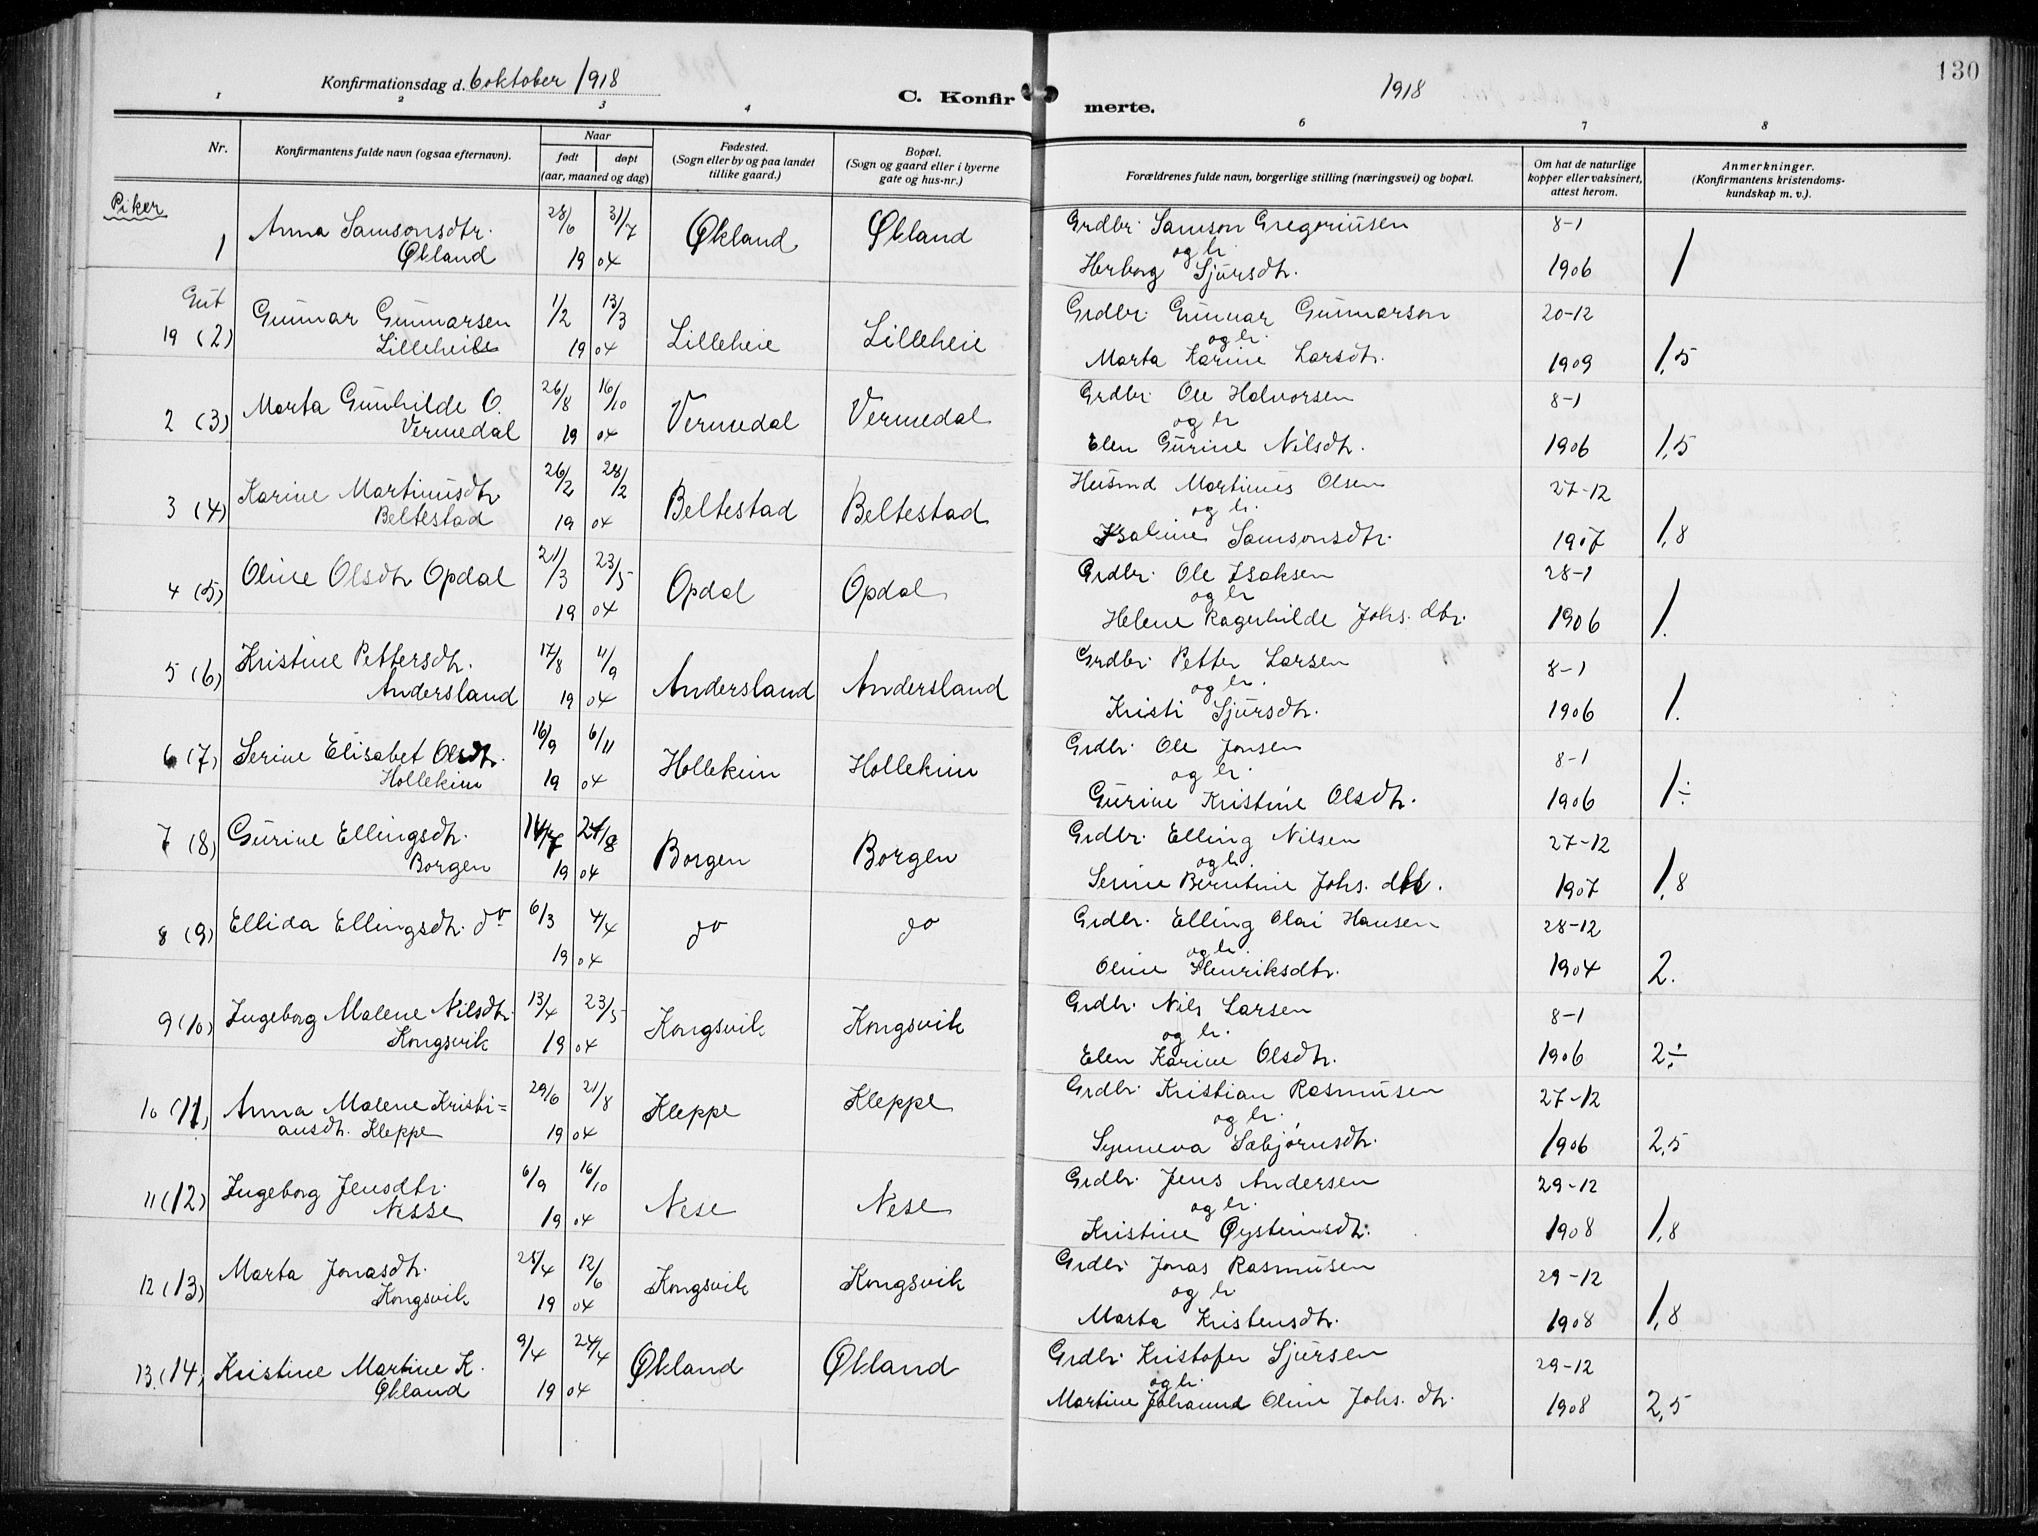 130
Konfirmationsdag d. 6 oktober 1918
1918
C. Konfirmerte.
1 2 3 4 5 6 7 8
Nr.
Konfirmantens fulde navn (ogsaa efternavn).
Naar
født døpt
(aar, maaned og dag)
Fødested.
(Sogn eller by og paa landet
tillike gaard.)
Bopæl.
(Sogn og gaard eller i byerne
gate og hus-nr.)
Forældrenes fulde navn, borgerlige stilling (næringsvei) og bopæl.
Om hat de naturlige
kopper eller vaksinert,
attest herom.
Anmerkninger.
(Konfirmantens kristendoms-
kundskap m. v.).
Piker
1 Anna Samsonsdtr. 28/6 31/7 Økland Økland Grdbr. Samson Gregoriussen 8-1
Økland 19 04 og hr. 1906 1
Herborg Sjursdtr.
Gut
19 (2) Gunnar Gunnarsen 1/2 13/3 Lilleheie Lilleheie Grdbr. Gunnar Gunnarson 20-12
Lilleheie 19 04 og hr. 1909 1,5
Marta Karine Larsdtr.
2 (3) Marta Gunhilde O. 26/8 16/10 Vermedal Vermedal Grdbr. Ole Halvorsen 8-1
Vermedal 19 04 og hr 1906 1,5
Elen Gurine Nilsdtr.
3 (4) Karine Martinusdtr 26/2 28/2 Beltestad Beltestad Husmd Martinus Olsen 27-12
Beltestad 19 04 og hr. 1907 1,8
Isaline Samsonsdtr.
4 (5) Oline Olsdtr Opdal 21/3 23/5 Opdal Opdal Grdbr. Ole Isaksen 28-1
19 04 og hr 1906 1.
Helene Ragnhilde Johs. dtr.
5 (6) Kristine Pettersdtr. 17/8 11/9 Andersland Andersland Grdbr. Petter Larsen 8-1
Andersland 19 04 og hr. 1906 1.
Kristi Sjursdtr.
6 (7) Serine Elisabet Olsdtr. 16/9 6/11 Hollekim Hollekim Grdbr. Ole Jonsen 8-1
Hollekim 19 04 og hr. 1906 1÷
Gurine Kristine Olsdtr.
7 (8) Gurine Ellingsdtr. 14/7 21/8 Borgen Borgen Grdbr. Elling Nilsen 27-12
Borgen 19 04 og hr. 1907 1,8
Serine Berntine Johs. dtr.
8 (9) Ellida Ellingsdtr. do 6/3 4/4 do do Grdbr. Elling Olai Hansen 28-12
19 04 og hr. 1904 2.
Oline Henriksdtr.
9 (10) Ingeborg Malene Nilsdtr. 13/4 23/5 Kongsvik Kongsvik Grdbr. Nils Larsen 8-1
Kongsvik 19 04 og hr. 1906 2÷
Elen Karine Olsdtr.
10 (11) Anna Malene Kristi= 29/6 21/8 Kleppe Kleppe Grdbr. Kristian Rasmusen 27-12
ansdtr. Kleppe 19 04 og hr. 1906 2,5
Synneva Sæbjørnsdtr.
11 (12) Ingeborg Jensdtr. 6/9 16/10 Nese Nese Grdbr. Jens Andersen 29-12
Nesse 19 04 og hr. 1908 1,8
Kristine Øysteinsdtr.
12 (13) Marta Jonasdtr. 28/4 12/6 Kongsvik Kongsvik Grdbr. Jonas Rasmusen 29-12
Kongsvik 19 04 og hr 1908 1,8
Marta Kristensdtr.
13. (14) Kristine Martine K. 9/4 24/4 Økland Økland Grdbr. Kristofer Sjursen 29-12
Økland 19 04 og hr. 1908 2,5
Martine Johanna Oline Johs. dtr.